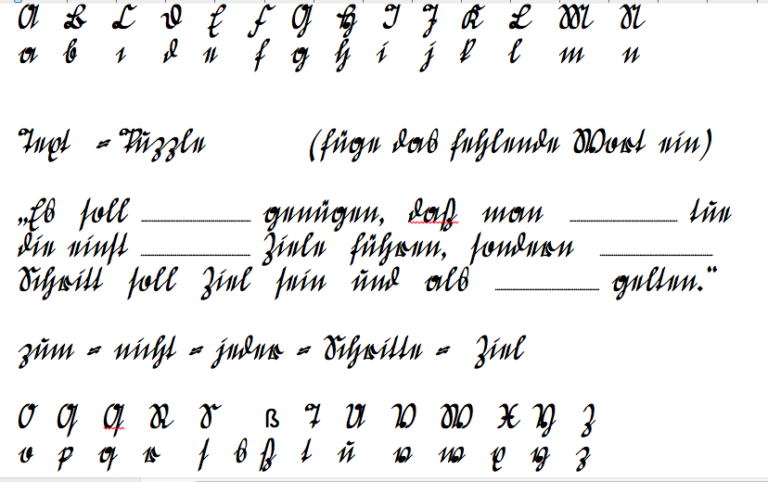 A B C D E F G H I J K L M N
a b c d e f g h i j k l m n
Text = Puzzle (füge das fehlende Wort ein)
„Es soll genügen, daß man tue
die einst Ziele führen, sondern
Schritt soll Ziel sein und als gelten.“
zum = nicht = jeder = Schritte = Ziel
O P Q R S ß T U V W X Y Z
o p q r s s ß t u v w x y z